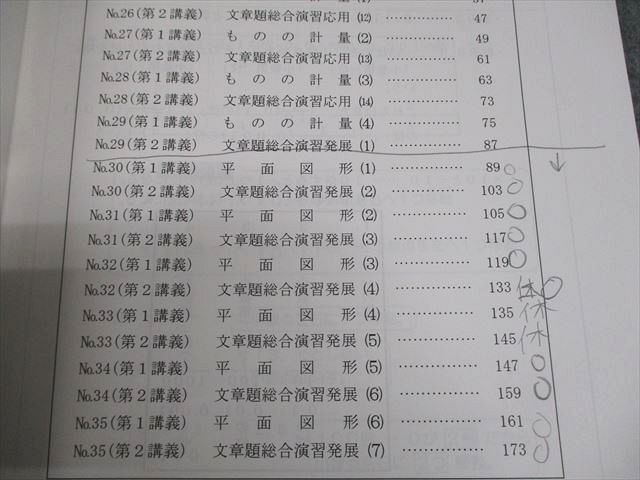 No.26(第2講義) 文章題総合演習応用 (12) …………… 47
No.27(第1講義) ものの計量 (2) …………… 49
No.27(第2講義) 文章題総合演習応用 (13) …………… 61
No.28(第1講義) ものの計量 (3) …………… 63
No.28(第2講義) 文章題総合演習応用 (14) …………… 73
No.29(第1講義) ものの計量 (4) …………… 75
No.29(第2講義) 文章題総合演習発展 (1) …………… 87
No.30(第1講義) 平面図形 (1) …………… 89 ○
No.30(第2講義) 文章題総合演習発展 (2) …………… 103 ○
No.31(第1講義) 平面図形 (2) …………… 105 ○
No.31(第2講義) 文章題総合演習発展 (3) …………… 117 ○
No.32(第1講義) 平面図形 (3) …………… 119 ○
No.32(第2講義) 文章題総合演習発展 (4) …………… 133 休 ○
No.33(第1講義) 平面図形 (4) …………… 135 休
No.33(第2講義) 文章題総合演習発展 (5) …………… 145 休
No.34(第1講義) 平面図形 (5) …………… 147 ○
No.34(第2講義) 文章題総合演習発展 (6) …………… 159 ○
No.35(第1講義) 平面図形 (6) …………… 161 ○
No.35(第2講義) 文章題総合演習発展 (7) …………… 173 ○